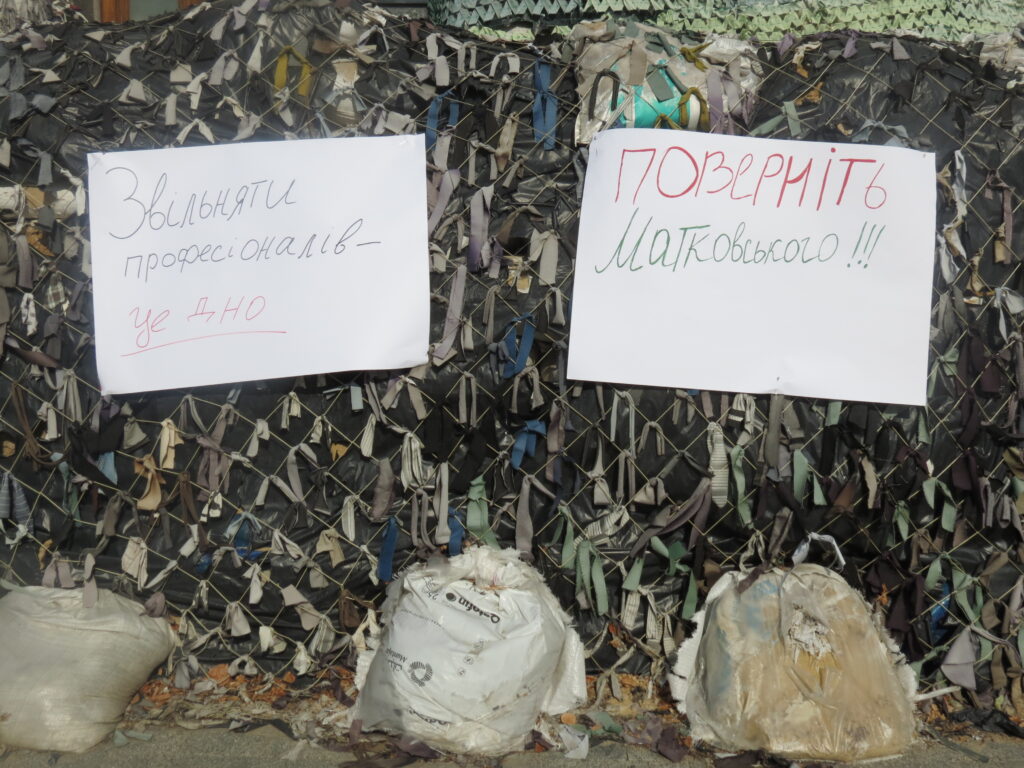 Звільняти
професіоналів–
це дно
ПОВЕРНІТЬ
Матковського!!!